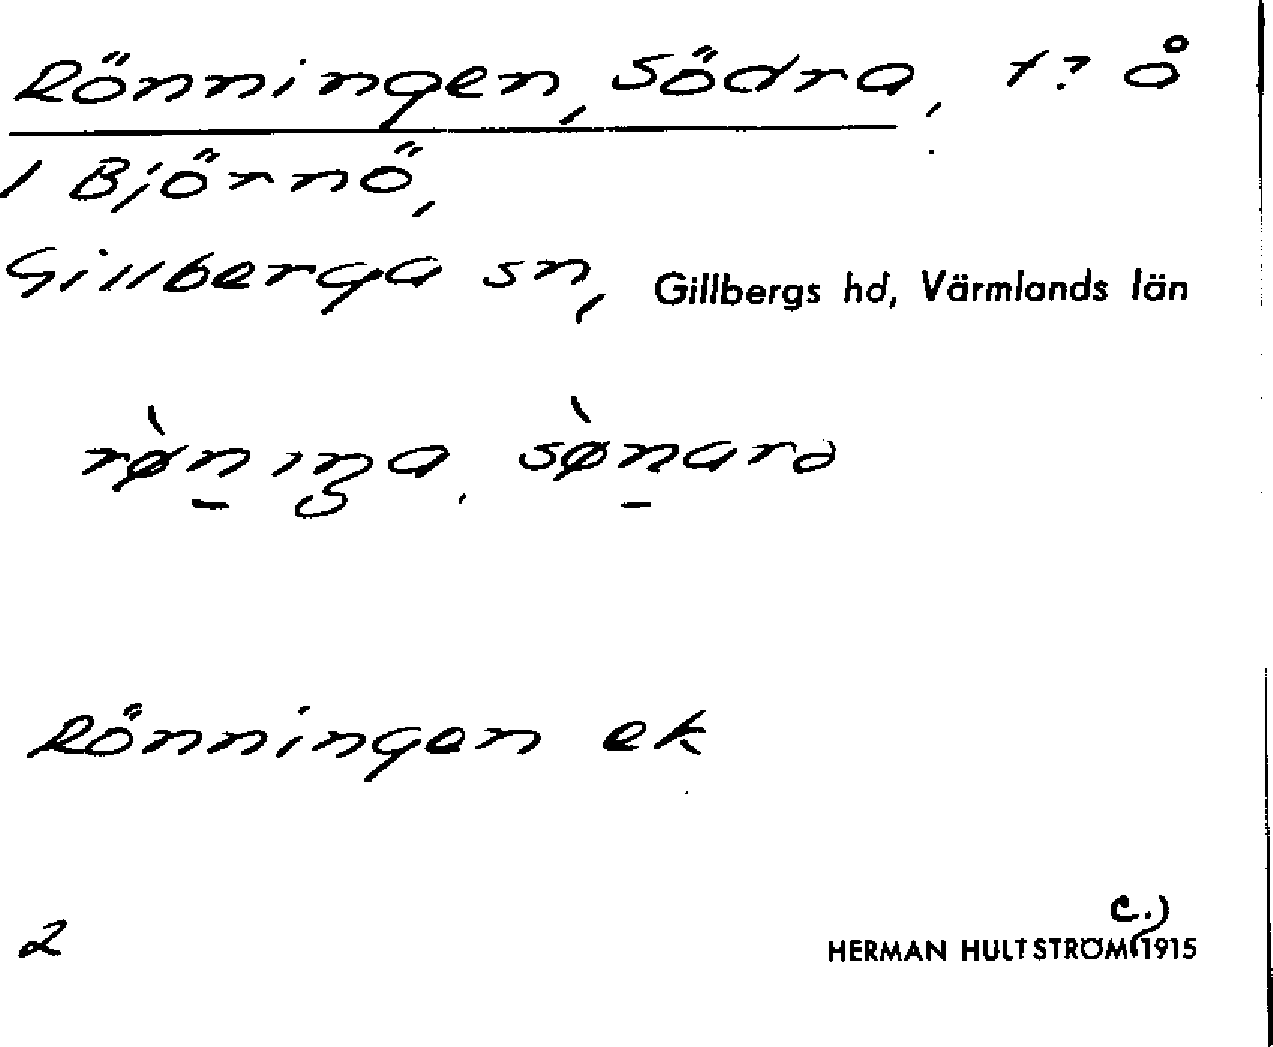 Rönningen, Södra, t? å
i Björnö,
Gillberga sn, Gillbergs hd, Värmlands län
rø̀n̲ıŋa, sø̀n̲arə
Rönningen ek
2
c.)
HERMAN HULTSTRÖM 1915